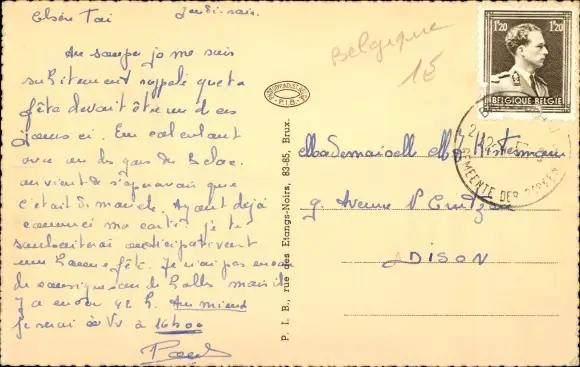 Jeudi-soir.
Au souper je me suis
subitement rappelé que ta
fête devait être un d ces
jours ci. En calculant
avec un des gars du
on vient de s'apercevoir que
c'était dimanche. Ayant déjà
commencé ma carte je te
souhaiterai anticipativement
une bonne fête. Je n'ai pas encore
de consignes mais il
y a encor 42 h. Au mieux
je serai à Vv à 16h00
Paul
Belgique
15
P. I. B.
P. I. B., rue des Etangs-Noirs, 83-85, Brux.
1F20 1F20
BELGIQUE-BELGIE
GEMEENTE DER
Mademoiselle
9. Avenue
DISON